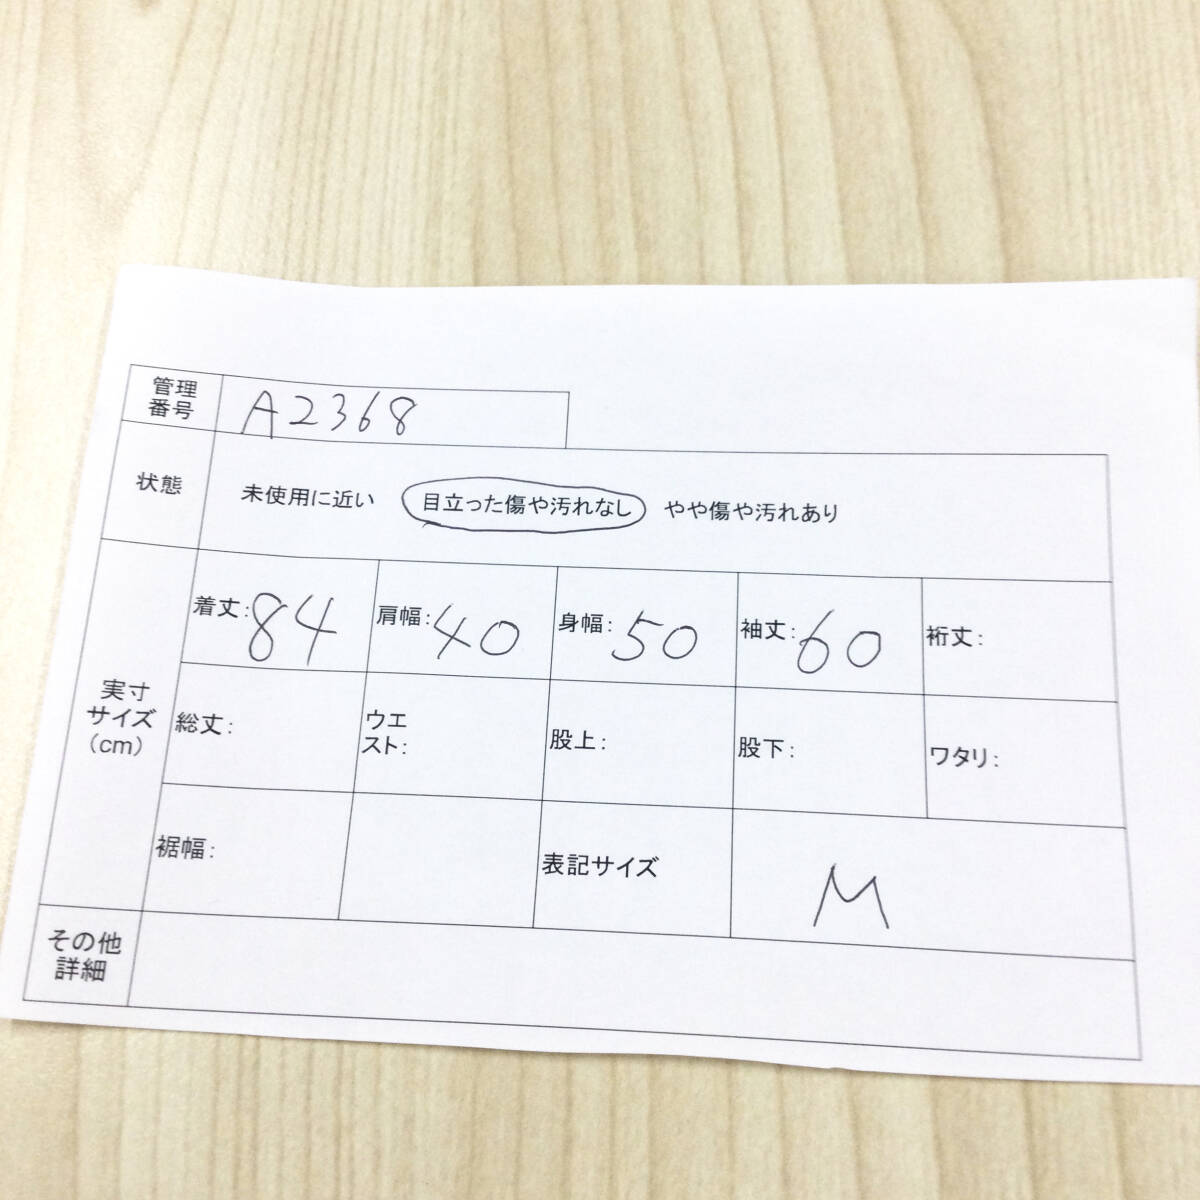 管理
番号
A2368
状態
未使用に近い 目立った傷や汚れなし やや傷や汚れあり
実寸
サイズ
（cm）
着丈：84 肩幅：40 身幅：50 袖丈：60 裄丈：
総丈： ウエ
スト： 股上： 股下： ワタリ：
裾幅： 表記サイズ M
その他
詳細